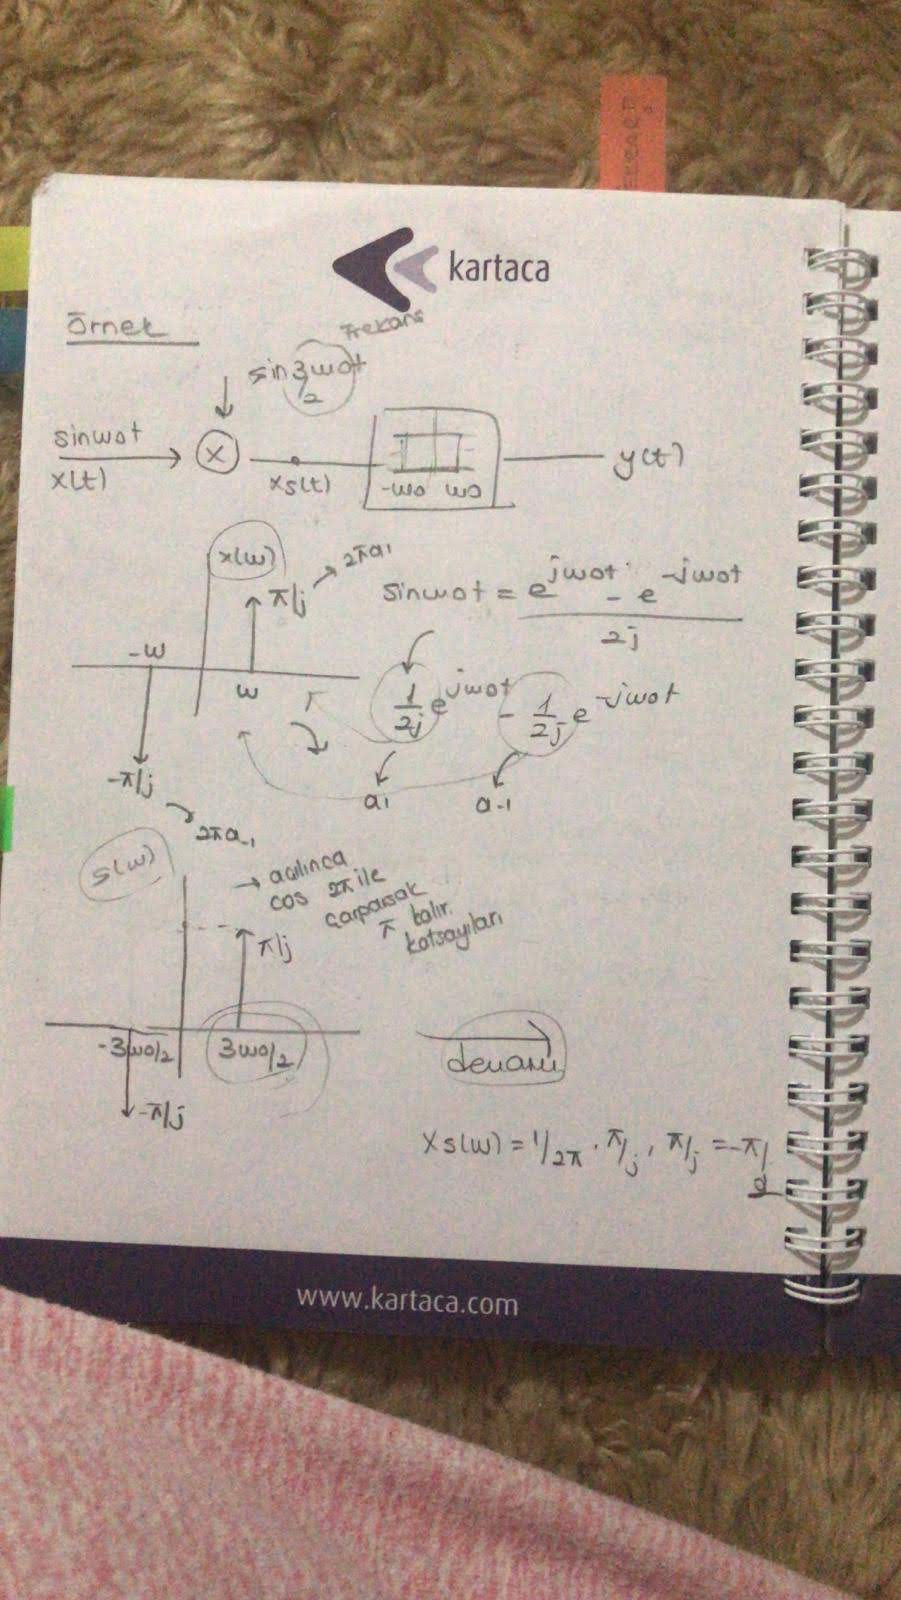 kartaca
Örnek
Frekans
sin 3wot/2
sinwot
x(t)
X
xs(t)
-wo wo
y(t)
x(w)
π/j → 2πa1
sinwot = e^jwot - e^-jwot / 2j
-w
w
1/2j e^jwot - 1/2j e^-jwot
-π/j
a1
a-1
2πa-1
s(w)
→ açılınca
cos 2π ile
çarparsak
π kalır.
katsayıları
π/j
-3wo/2
3wo/2
devamı
-π/j
Xs(w) = 1/2π . π/j . π/j = -π/2
www.kartaca.com